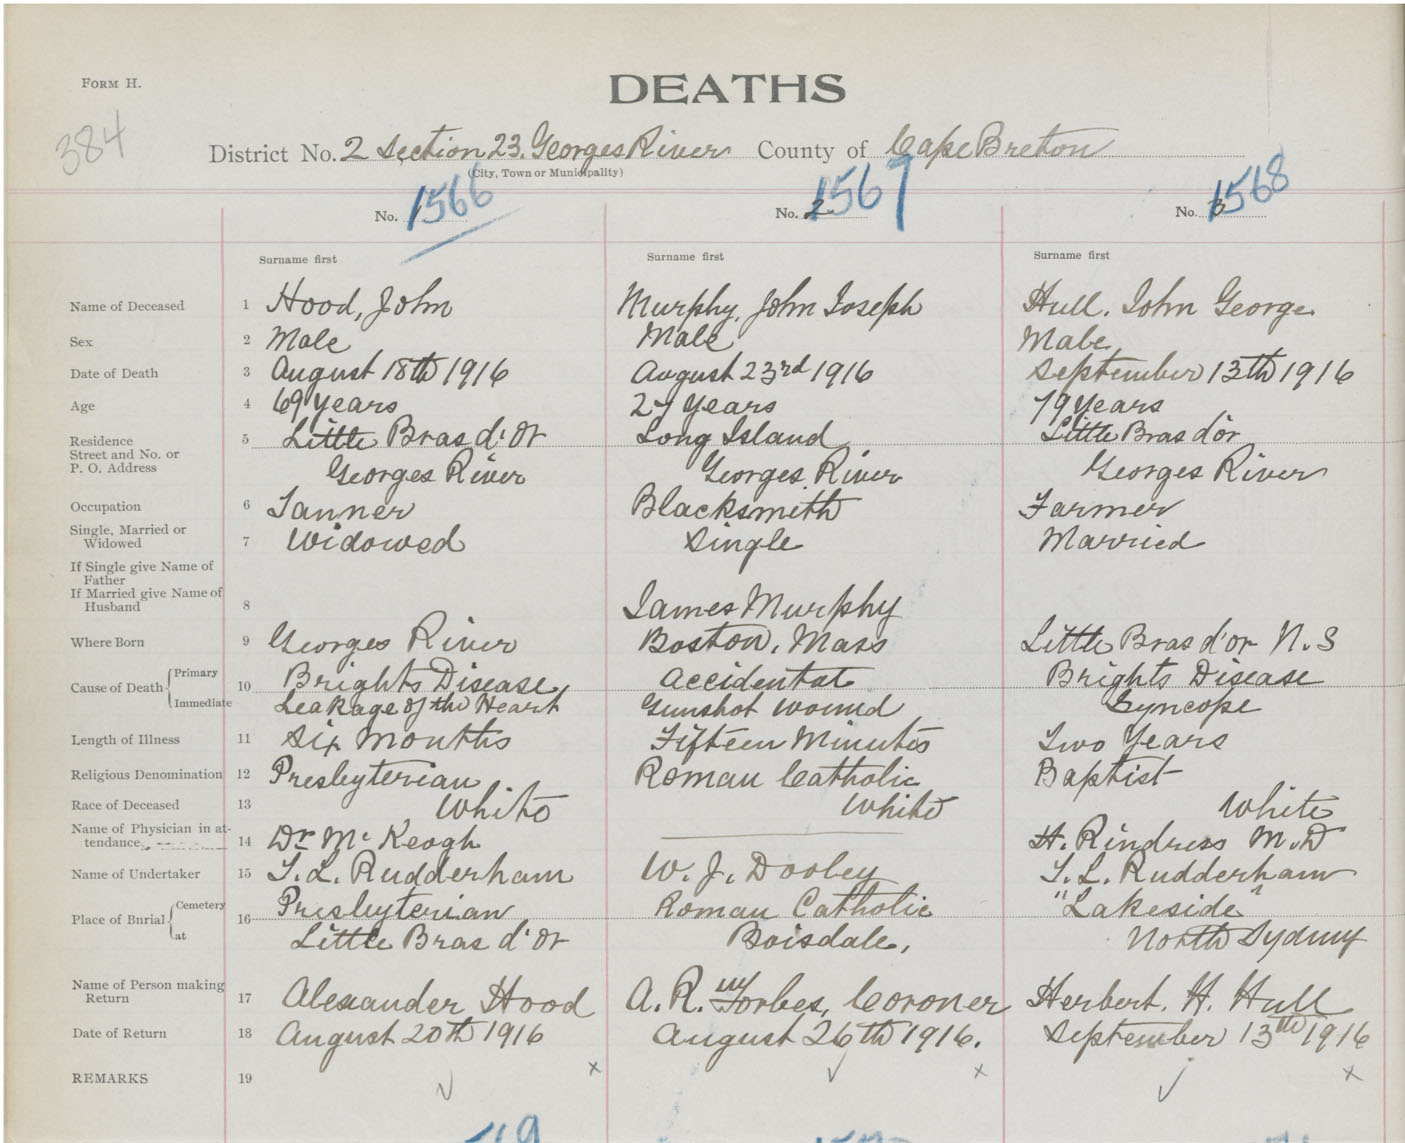 FORM H.
DEATHS
384
District No. 2 Section 23. Georges River County of Cape Breton
(City, Town or Municipality)
No. 1 1566 No. 2 1567 No. 3 1568
Surname first Surname first Surname first
Name of Deceased 1 Hood, John Murphy, John Joseph Hull, John George
Sex 2 Male Male Male
Date of Death 3 August 18th 1916 August 23rd 1916 September 13th 1916
Age 4 69 years 27 years 79 years
Residence 5 Little Bras d'Or Long Island Little Bras d'or
Street and No. or
P. O. Address Georges River Georges River Georges River
Occupation 6 Tanner Blacksmith Farmer
Single, Married or
Widowed 7 Widowed Single Married
If Single give Name of
Father
If Married give Name of
Husband 8 James Murphy
Where Born 9 Georges River Boston, Mass Little Bras d'or N.S
Cause of Death Primary 10 Brights Disease Accidental Brights Disease
Immediate Leakage of the Heart Gunshot wound Syncope
Length of Illness 11 Six Months Fifteen Minutes Two Years
Religious Denomination 12 Presbyterian Roman Catholic Baptist
Race of Deceased 13 White White White
Name of Physician in at-
tendance 14 Dr McKeogh H. Rindress M.D
Name of Undertaker 15 T. L. Rudderham W. J. Dooley T. L. Rudderham
Place of Burial Cemetery 16 Presbyterian Roman Catholic "Lakeside"
at Little Bras d'Or Boisdale, North Sydney
Name of Person making
Return 17 Alexander Hood A. R. Forbes, Coroner Herbert. H. Hull
Date of Return 18 August 20th 1916 August 26th 1916. September 13th 1916
REMARKS 19 x x x